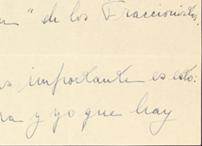 " de los Fraccionistas,
importante es esto:
y yo que hay